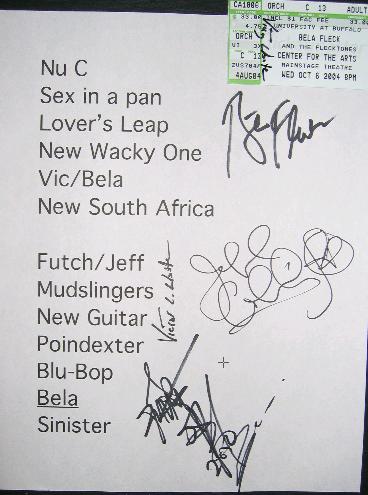 CA1006 ORCH C 13 ADULT
$ 33.00 INCL $1 FAC FEE 33.00
4.75 UNIVERSITY AT BUFFALO
ORCH BELA FLECK
AND THE FLECKTONES
C 13 CENTER FOR THE ARTS
MAINSTAGE THEATRE
4AUG04 WED OCT 6 2004 8PM
Nu C
Sex in a pan
Lover's Leap
New Wacky One
Vic/Bela
New South Africa
Futch/Jeff
Mudslingers
New Guitar
Poindexter
Blu-Bop
Bela
Sinister